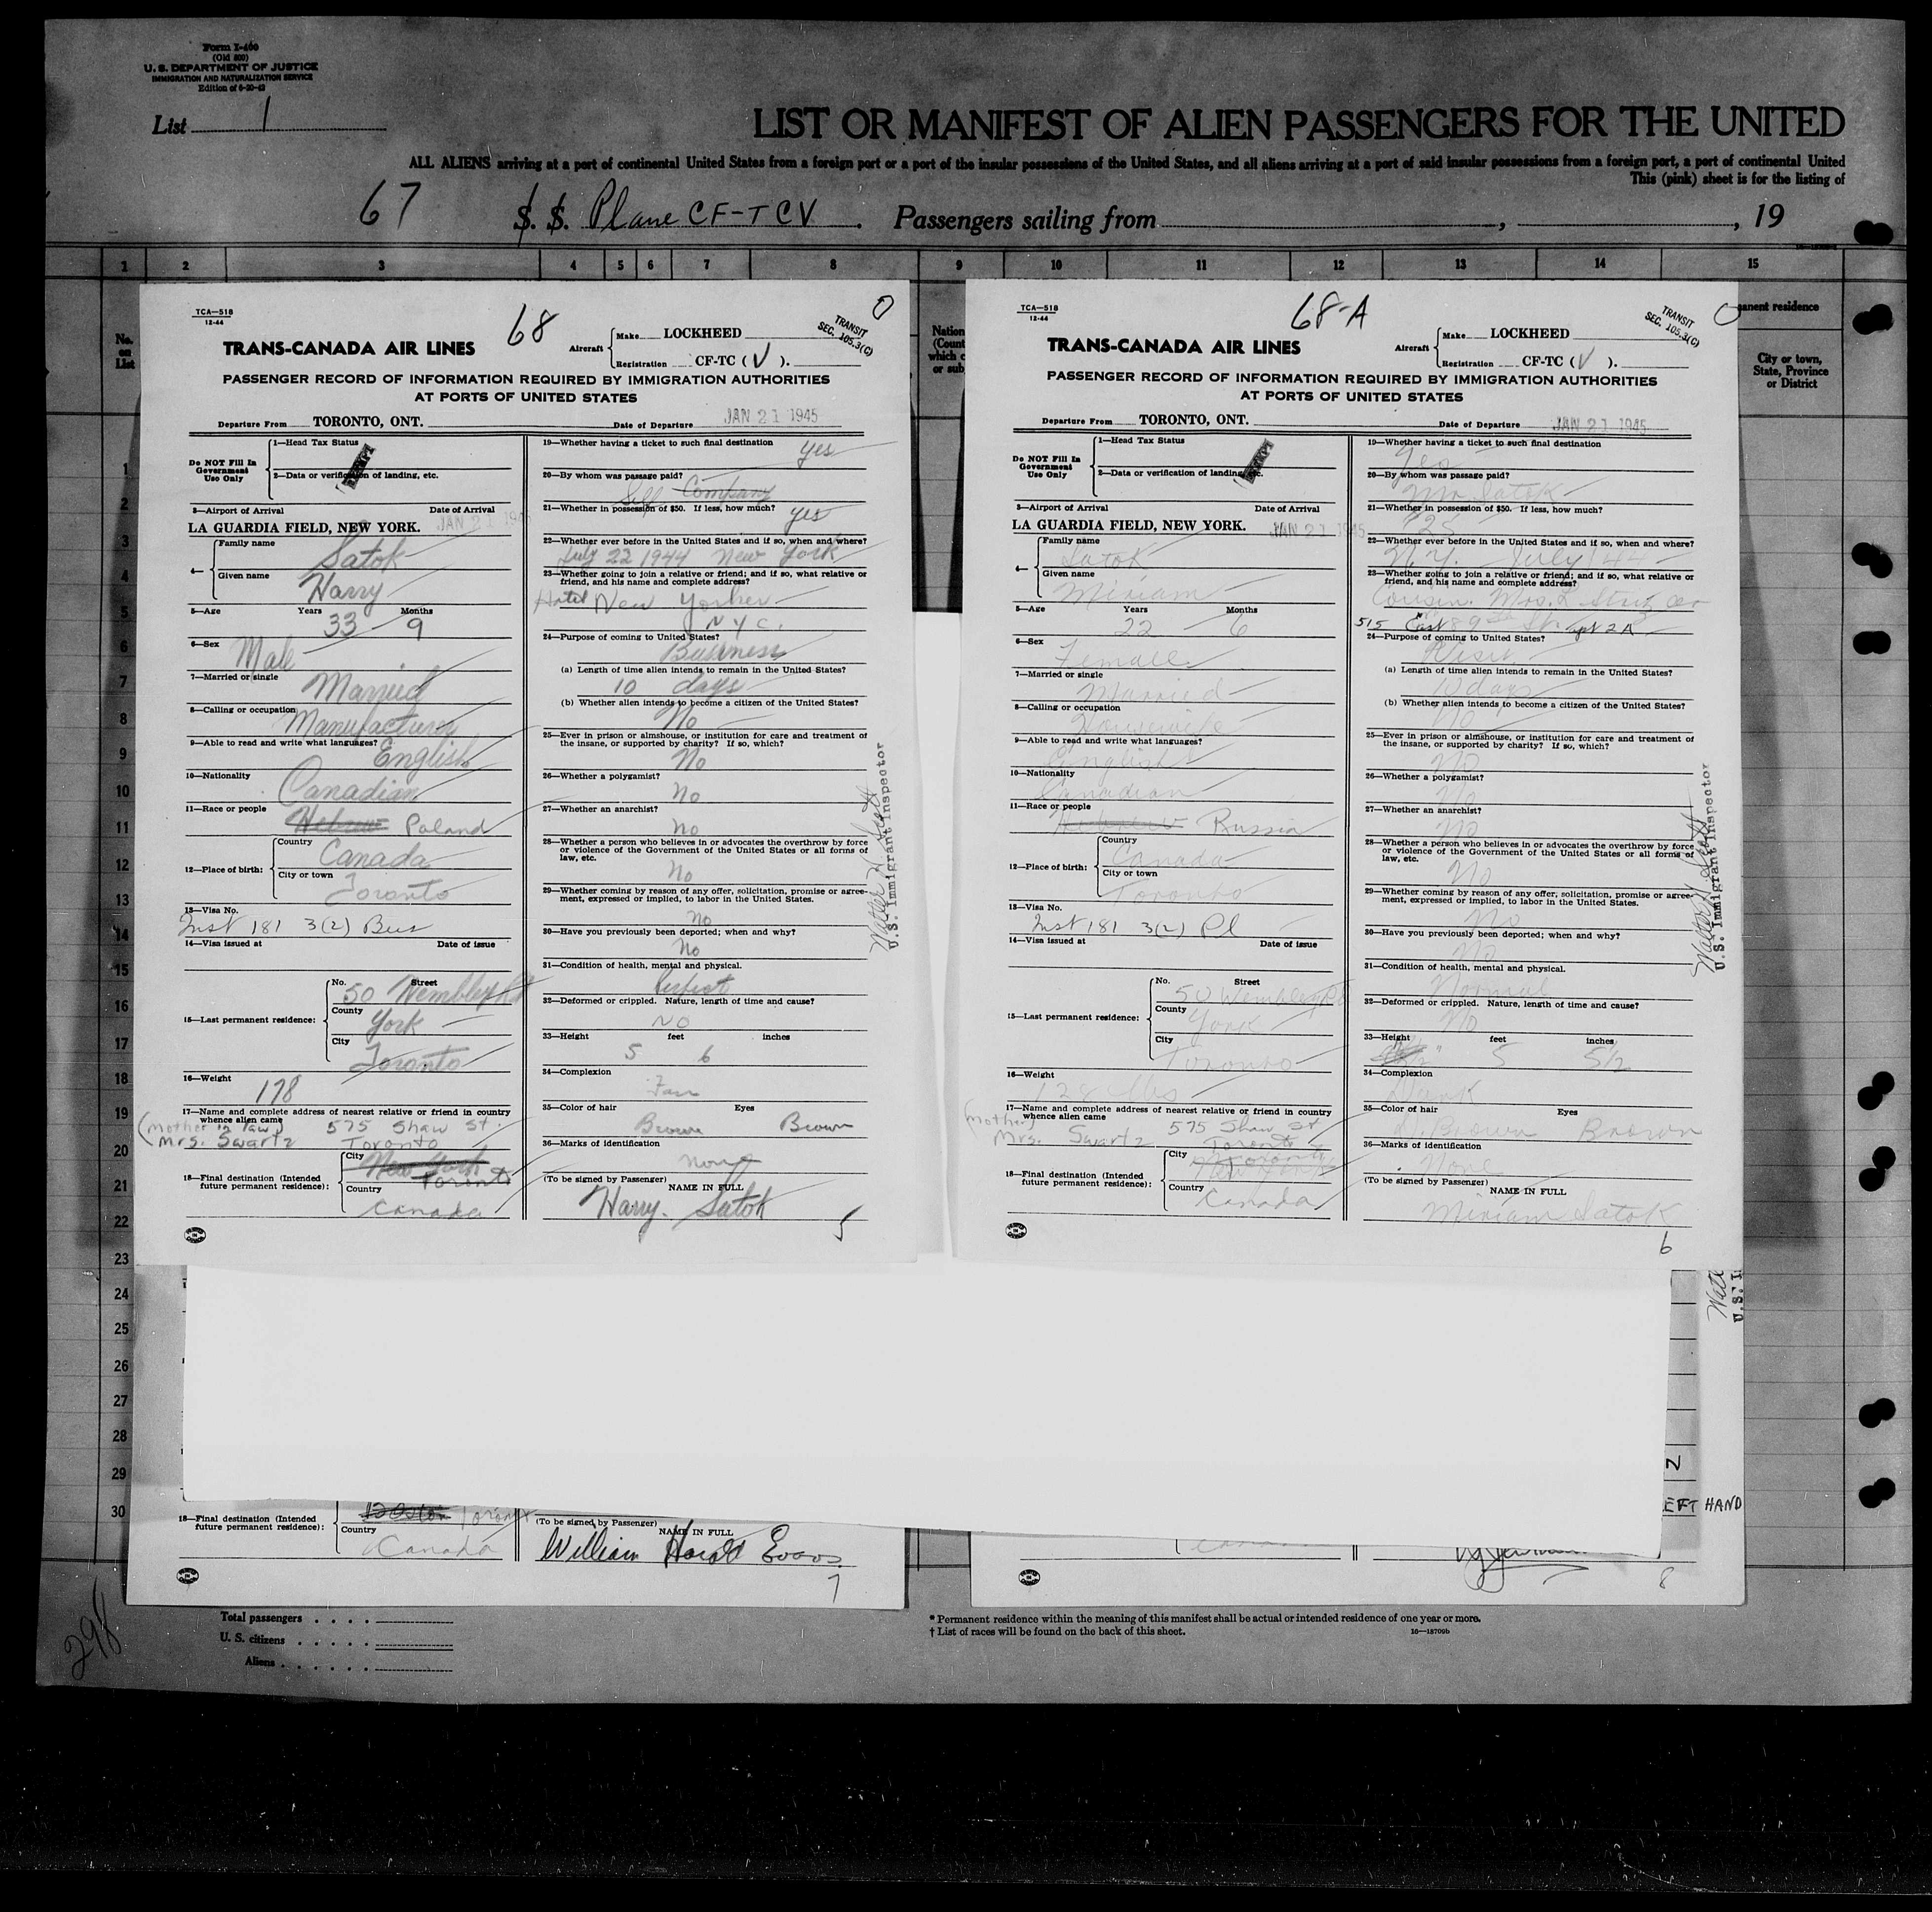 Form I-400
(Old 500)
U. S. DEPARTMENT OF JUSTICE
IMMIGRATION AND NATURALIZATION SERVICE
Edition of 6-20-43
List 1
LIST OR MANIFEST OF ALIEN PASSENGERS FOR THE UNITED
ALL ALIENS arriving at a port of continental United States from a foreign port or a port of the insular possessions of the United States, and all aliens arriving at a port of said insular possessions from a foreign port, a port of continental United
This (pink) sheet is for the listing of
67 S. S. Plane CF-TCV. Passengers sailing from , , 19
1 2 3 4 5 6 7 8 9 10 11 12 13 14 15
No. on List
TCA—518
12-44
68
0
TRANSIT
SEC. 105.3(C)
TRANS-CANADA AIR LINES
Aircraft Make LOCKHEED
Registration CF-TC ( V ).
PASSENGER RECORD OF INFORMATION REQUIRED BY IMMIGRATION AUTHORITIES
AT PORTS OF UNITED STATES
Departure From TORONTO, ONT. Date of Departure JAN 21 1945
Do NOT Fill In Government Use Only
1—Head Tax Status
2—Data or verification of landing, etc.
3—Airport of Arrival Date of Arrival
LA GUARDIA FIELD, NEW YORK. JAN 21 1945
4— Family name Satok
Given name Harry
5—Age Years 33 Months 9
6—Sex Male
7—Married or single Married
8—Calling or occupation Manufacturer
9—Able to read and write what languages? English
10—Nationality Canadian
11—Race or people Hebrew Poland
12—Place of birth: Country Canada
City or town Toronto
13—Visa No.
Inst 181 3(2) Bus
14—Visa issued at Date of issue
15—Last permanent residence: No. Street 50 Wembley Rd
County York
City Toronto
16—Weight 178
17—Name and complete address of nearest relative or friend in country
whence alien came
(mother in law) 575 Shaw St.
Mrs. Swartz Toronto
18—Final destination (Intended future permanent residence): City New York Toronto
Country Canada
19—Whether having a ticket to such final destination yes
20—By whom was passage paid? Self Company
21—Whether in possession of $50. If less, how much? yes
22—Whether ever before in the United States and if so, when and where?
July 22 1944 New York
23—Whether going to join a relative or friend; and if so, what relative or
friend, and his name and complete address?
Hotel New Yorker
NYC.
24—Purpose of coming to United States? Business
(a) Length of time alien intends to remain in the United States?
10 days
(b) Whether alien intends to become a citizen of the United States?
No
25—Ever in prison or almshouse, or institution for care and treatment of
the insane, or supported by charity? If so, which?
No
26—Whether a polygamist?
No
27—Whether an anarchist?
No
28—Whether a person who believes in or advocates the overthrow by force
or violence of the Government of the United States or all forms of
law, etc.
No
29—Whether coming by reason of any offer, solicitation, promise or agree-
ment, expressed or implied, to labor in the United States.
No
30—Have you previously been deported; when and why?
No
31—Condition of health, mental and physical.
Perfect
32—Deformed or crippled. Nature, length of time and cause?
NO
33—Height 5 feet 6 inches
34—Complexion Fair
35—Color of hair Brown Eyes Brown
36—Marks of identification
none
(To be signed by Passenger) NAME IN FULL
Harry Satok
5
Walter H Scott
U.S. Immigrant Inspector
TCA—518
12-44
68-A
0
TRANSIT
SEC. 105.3(C)
TRANS-CANADA AIR LINES
Aircraft Make LOCKHEED
Registration CF-TC ( V ).
PASSENGER RECORD OF INFORMATION REQUIRED BY IMMIGRATION AUTHORITIES
AT PORTS OF UNITED STATES
Departure From TORONTO, ONT. Date of Departure JAN 21 1945
Do NOT Fill In Government Use Only
1—Head Tax Status
2—Data or verification of landing, etc.
3—Airport of Arrival Date of Arrival
LA GUARDIA FIELD, NEW YORK. JAN 21 1945
4— Family name Satok
Given name Miriam
5—Age Years 22 Months 6
6—Sex Female
7—Married or single Married
8—Calling or occupation Housewife
9—Able to read and write what languages? English
10—Nationality Canadian
11—Race or people Hebrew Russia
12—Place of birth: Country Canada
City or town Toronto
13—Visa No.
Inst 181 3(2) Pl
14—Visa issued at Date of issue
15—Last permanent residence: No. Street 50 Wembley Rd
County York
City Toronto
16—Weight 128 lbs
17—Name and complete address of nearest relative or friend in country
whence alien came
(mother) 575 Shaw St
Mrs. Swartz Toronto
18—Final destination (Intended future permanent residence): City New York Toronto
Country Canada
19—Whether having a ticket to such final destination
Yes
20—By whom was passage paid?
Mr. Satok
21—Whether in possession of $50. If less, how much?
$25
22—Whether ever before in the United States and if so, when and where?
N.Y. July
23—Whether going to join a relative or friend; and if so, what relative or
friend, and his name and complete address?
Cousin. Mrs. L
515 East 89 St. apt 2A
24—Purpose of coming to United States?
Visit
(a) Length of time alien intends to remain in the United States?
10 days
(b) Whether alien intends to become a citizen of the United States?
No
25—Ever in prison or almshouse, or institution for care and treatment of
the insane, or supported by charity? If so, which?
No
26—Whether a polygamist?
No
27—Whether an anarchist?
No
28—Whether a person who believes in or advocates the overthrow by force
or violence of the Government of the United States or all forms of
law, etc.
No
29—Whether coming by reason of any offer, solicitation, promise or agree-
ment, expressed or implied, to labor in the United States.
No
30—Have you previously been deported; when and why?
No
31—Condition of health, mental and physical.
Normal
32—Deformed or crippled. Nature, length of time and cause?
No
33—Height 5 feet 5½ inches
34—Complexion Dark
35—Color of hair D. Brown Eyes Brown
36—Marks of identification
None
(To be signed by Passenger) NAME IN FULL
Miriam Satok
6
Walter H Scott
U.S. Immigrant Inspector
anent residence
City or town, State, Province or District
1
2
3
4
5
6
7
8
9
10
11
12
13
14
15
16
17
18
19
20
21
22
23
24
25
26
27
28
29
30
EFT HAND
18—Final destination (Intended future permanent residence): Boston Toronto
Country Canada
(To be signed by Passenger) NAME IN FULL
William Harold Evans
7
8
298
Total passengers
U. S. citizens
Aliens
* Permanent residence within the meaning of this manifest shall be actual or intended residence of one year or more.
† List of races will be found on the back of this sheet.
16—18709b